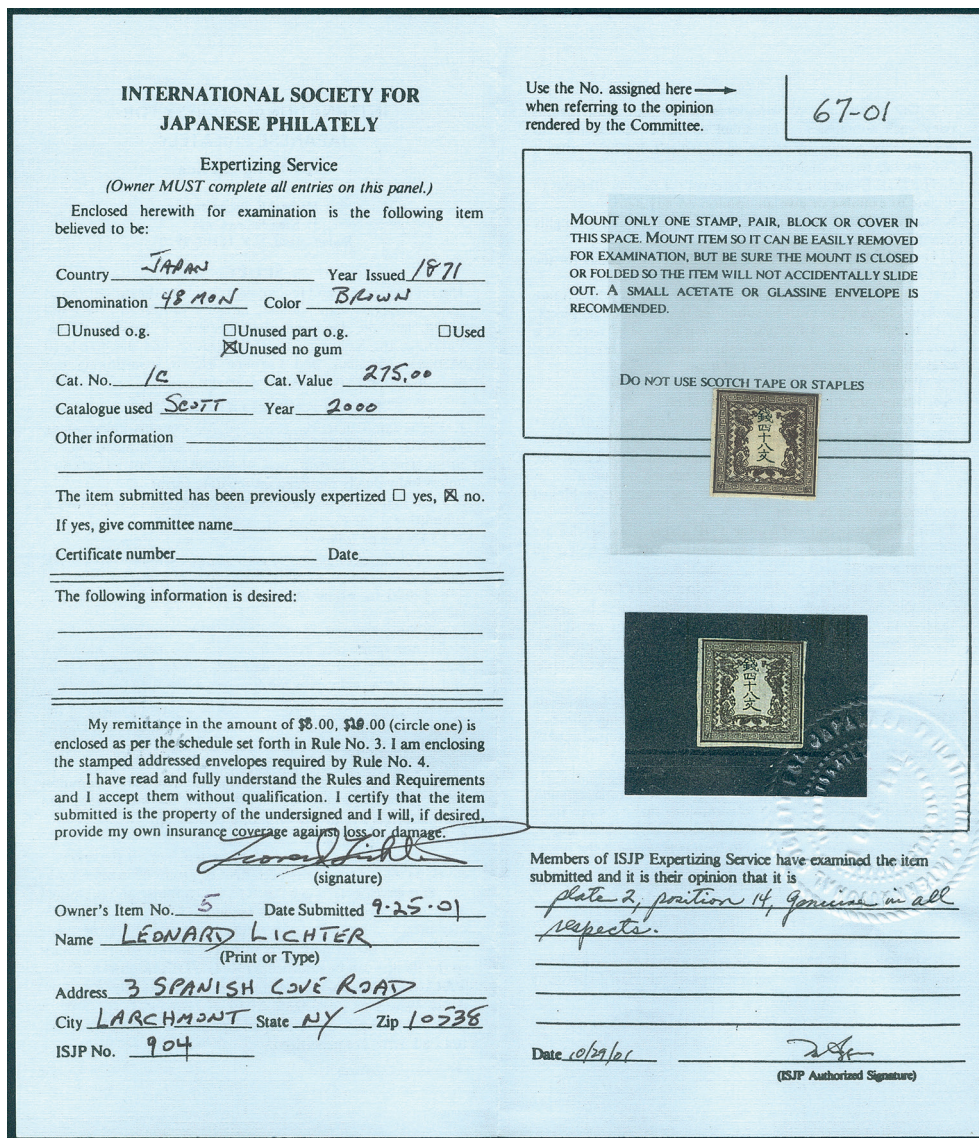 INTERNATIONAL SOCIETY FOR
JAPANESE PHILATELY
Expertizing Service
(Owner MUST complete all entries on this panel.)
Enclosed herewith for examination is the following item
believed to be:
Country JAPAN Year Issued 1871
Denomination 48 MON Color BROWN
☐Unused o.g. ☐Unused part o.g. ☐Used
☒Unused no gum
Cat. No. 1C Cat. Value 275.00
Catalogue used SCOTT Year 2000
Other information
The item submitted has been previously expertized ☐ yes, ☒ no.
If yes, give committee name
Certificate number Date
The following information is desired:
My remittance in the amount of $8.00, $10.00 (circle one) is
enclosed as per the schedule set forth in Rule No. 3. I am enclosing
the stamped addressed envelopes required by Rule No. 4.
I have read and fully understand the Rules and Requirements
and I accept them without qualification. I certify that the item
submitted is the property of the undersigned and I will, if desired,
provide my own insurance coverage against loss or damage.
Leonard Lichter
(signature)
Owner's Item No. 5 Date Submitted 9-25-01
Name LEONARD LICHTER
(Print or Type)
Address 3 SPANISH COVE ROAD
City LARCHMONT State NY Zip 10538
ISJP No. 904
Use the No. assigned here
when referring to the opinion
rendered by the Committee.
67-01
MOUNT ONLY ONE STAMP, PAIR, BLOCK OR COVER IN
THIS SPACE. MOUNT ITEM SO IT CAN BE EASILY REMOVED
FOR EXAMINATION, BUT BE SURE THE MOUNT IS CLOSED
OR FOLDED SO THE ITEM WILL NOT ACCIDENTALLY SLIDE
OUT. A SMALL ACETATE OR GLASSINE ENVELOPE IS
RECOMMENDED.
DO NOT USE SCOTCH TAPE OR STAPLES
錢四十八文
錢四十八文
Members of ISJP Expertizing Service have examined the item
submitted and it is their opinion that it is
plate 2, position 14, genuine in all
respects.
Date 10/29/01
(ISJP Authorized Signature)